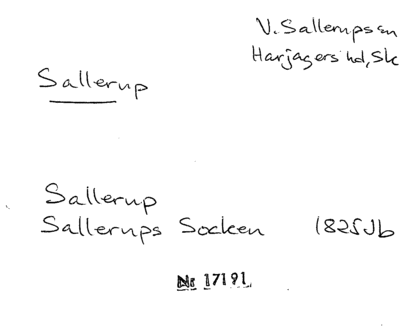 V. Sallerups sn
Harjagers hd, Sk
Sallerup
Sallerup
Sallerups Socken 1825 Jb
Nr 17191.